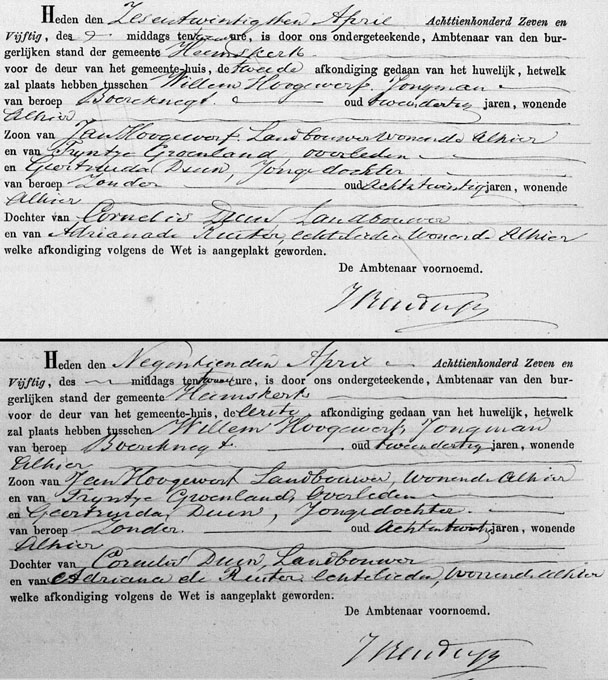 Heden den Zesentwintigsten April Achttienhonderd Zeven en
Vijftig, des middags ten twaalf ure, is door ons ondergeteekende, Ambtenaar van den bur-
gerlijken stand der gemeente Heemskerk
voor de deur van het gemeente-huis, de tweede afkondiging gedaan van het huwelijk, hetwelk
zal plaats hebben tusschen Willem Hoogewerf, Jongman
van beroep Boereknegt oud tweendertig jaren, wonende
Alhier
Zoon van Jan Hoogewerf Landbouwer Wonende Alhier
en van Tryntje Groenland overleden
en Geertruida Duin, Jongedochter
van beroep Zonder oud Achtentwintig jaren, wonende
Alhier
Dochter van Cornelis Duin Landbouwer
en van Adriana de Ruiter, echtelieden Wonende Alhier
welke afkondiging volgens de Wet is aangeplakt geworden.
De Ambtenaar voornoemd.
Heden den Negentienden April Achttienhonderd Zeven en
Vijftig, des middags ten twaalf ure, is door ons ondergeteekende, Ambtenaar van den bur-
gerlijken stand der gemeente Heemskerk
voor de deur van het gemeente-huis, de eerste afkondiging gedaan van het huwelijk, hetwelk
zal plaats hebben tusschen Willem Hoogewerf, Jongman
van beroep Boereknegt oud tweendertig jaren, wonende
Alhier
Zoon van Jan Hoogewerf Landbouwer, Wonende Alhier
en van Tryntje Groenland, Overleden
en Geertruida Duin, Jongedochter
van beroep Zonder oud Achtentwintig jaren, wonende
Alhier
Dochter van Cornelis Duin, Landbouwer
en van Adriana de Ruiter Echtelieden, Wonende Alhier
welke afkondiging volgens de Wet is aangeplakt geworden:
De Ambtenaar voornoemd.